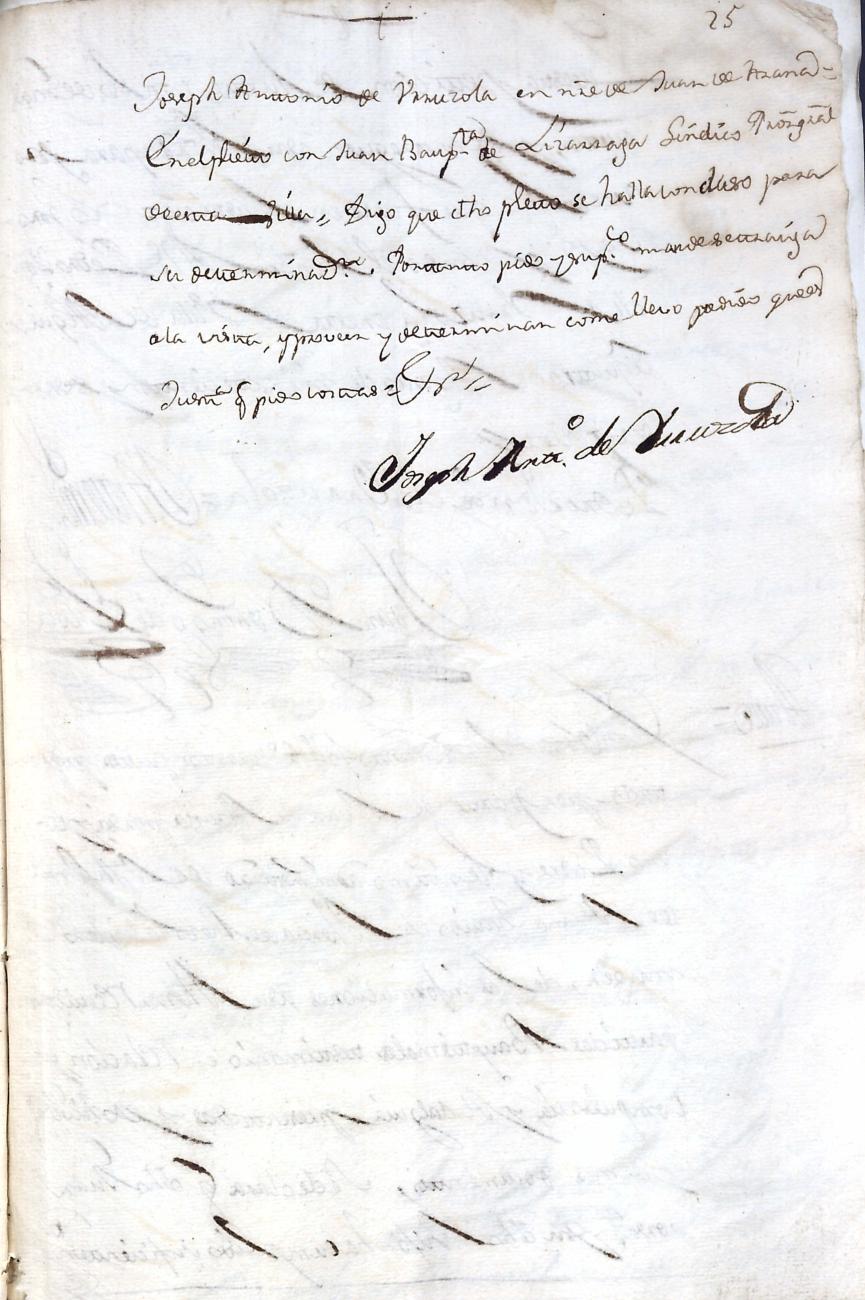 25
Joseph Antonio de Vrruzola en nre de Juan de Arana =
En el pleito con Juan Baupta de Lizarraga Sindico Prõr gral
de esta Villa,, Digo que dho pleito se halla concluso para
su determinaon. Portanto pido y supco mande se traiga
a la vista, y proveer y determinar como llevo pedido que es
Justa q pido costas =
Joseph Anto. de Vrruzola